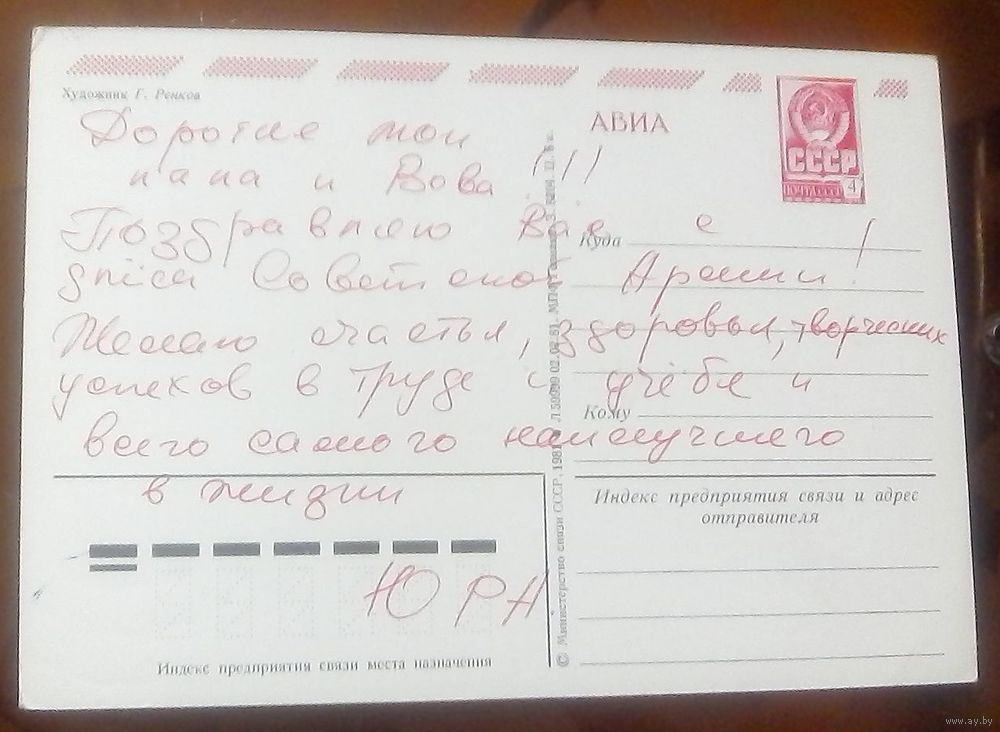 Художник Г. Ренков
АВИА
СССР
ПОЧТА СССР
4
Дорогие мои
папа и Вова !!!
Поздравляю Вас с
днём Советской Армии!
Желаю счастья, здоровья, творческих
успехов в труде и учёбе и
всего самого наилучшего
в жизни
ЮРА
Куда
Кому
Индекс предприятия связи и адрес
отправителя
Индекс предприятия связи места назначения
© Министерство связи СССР, 1981
02.02.81. МПФ Гознака.
www.ay.by